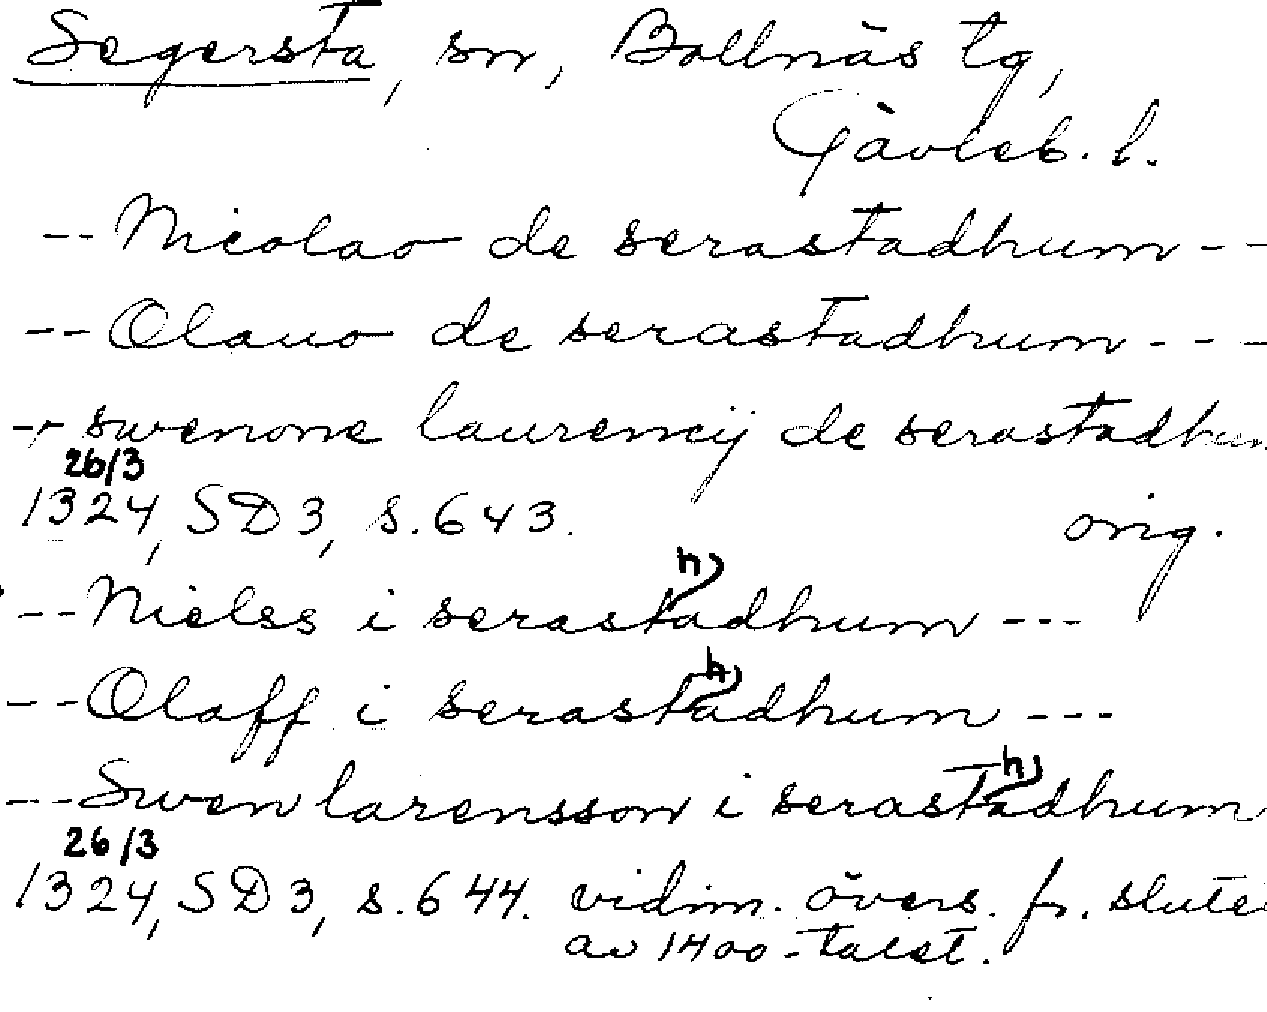 Segersta, sn, Bollnäs tg,
Gävleb. l.
-- Nicolao de serastadhum --
-- Olauo de serastadhum ---
-- swenone laurencij de serastadhum
26/3
1324, SD 3, s. 643. orig.
h)
-- Nielss i serastadhum ---
h)
-- Olaff i serastadhum ---
h)
--- Swen larensson i serastadhum
26/3
1324, SD 3, s. 644. vidim. övers. fr. slutet
av 1400-talet.